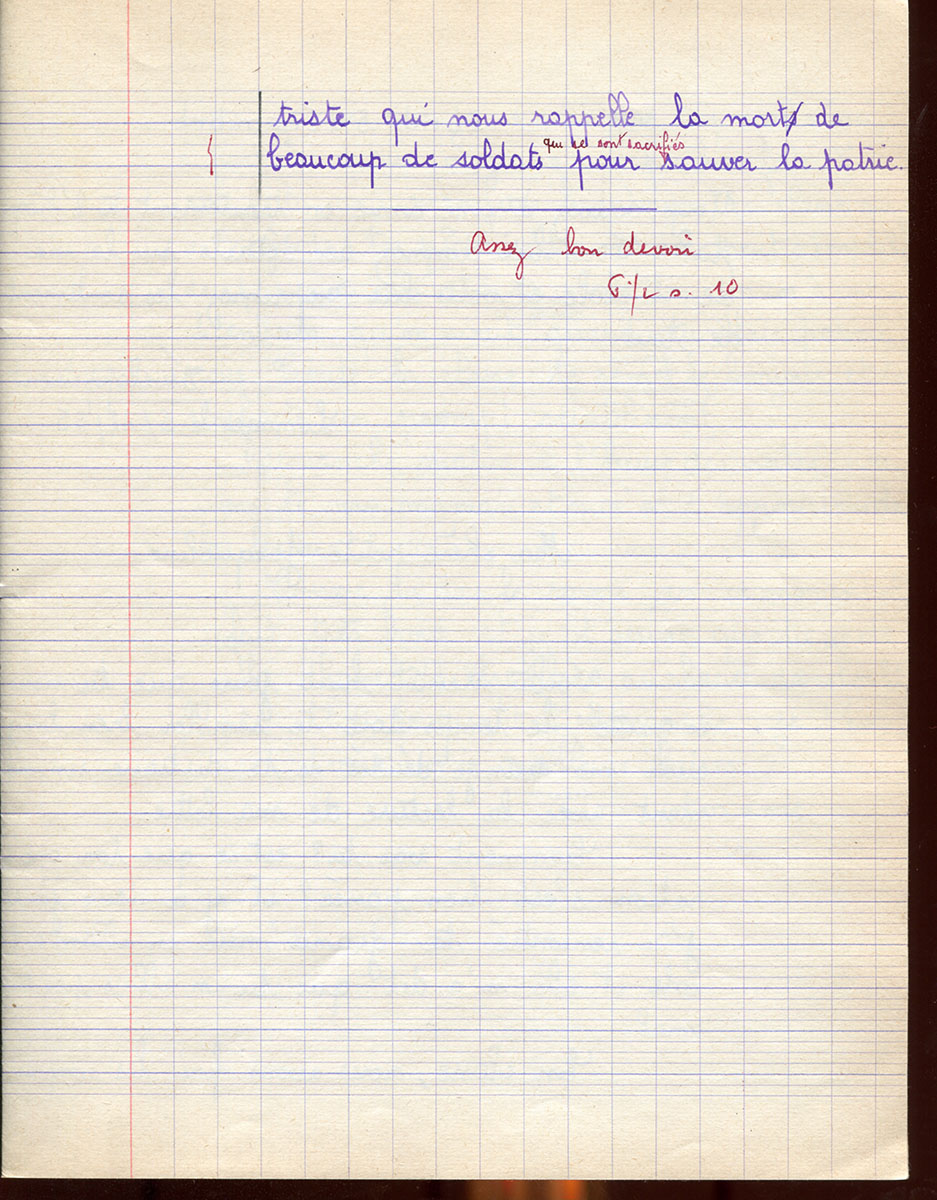 triste qui nous rappelle la mort de
beaucoup de soldats qui se sont sacrifiés pour sauver la patrie.
Assez bon devoir
s. 10